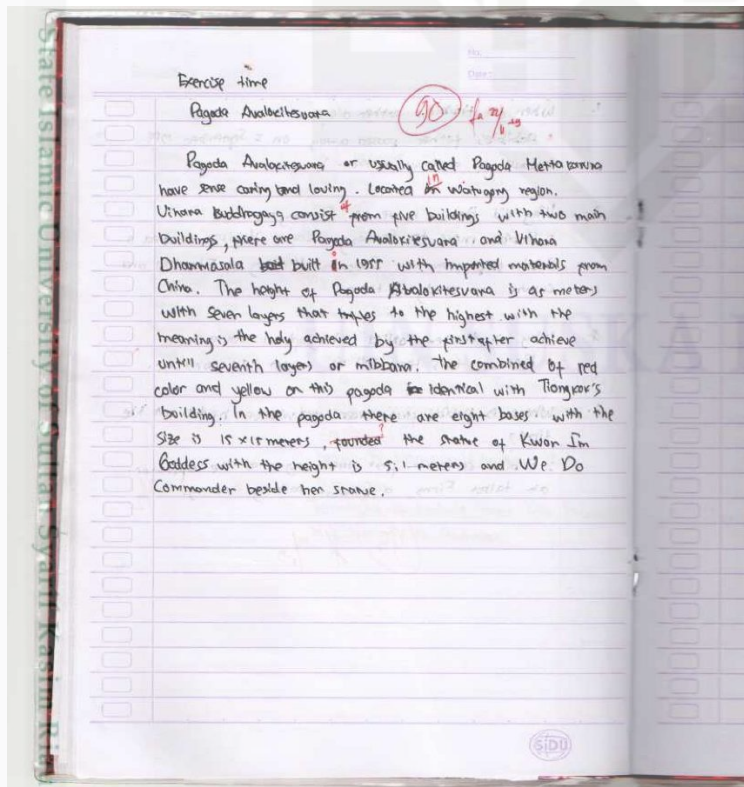 No.
Date:
Exercise time
Pagoda Avalokitesvara
90
Pagoda Avalokitesvara or usually called Pagoda Metta karuna
have sense caring and loving. Located in Watugong region.
Vihara Buddhagaya consist of from five buildings with two main
buildings, there are Pagoda Avalokitesvara and Vihara
Dhammasala built in 1955 with imported materials from
China. The height of Pagoda Abalokitesvara is 45 meters
with seven layers that to the highest with the
meaning is the holy achieved by the first after achieve
untill seventh layers or nibbana. The combined of red
color and yellow on this pagoda identical with Tiongkok's
building. In the pagoda there are eight bases with the
size is 15 x 15 meters, founded ? the statue of Kwan Im
Goddess with the height is 5,1 meters and We Do
Commander beside her statue.
SiDU
State Islamic University of Sultan Syarif Kasim Ri